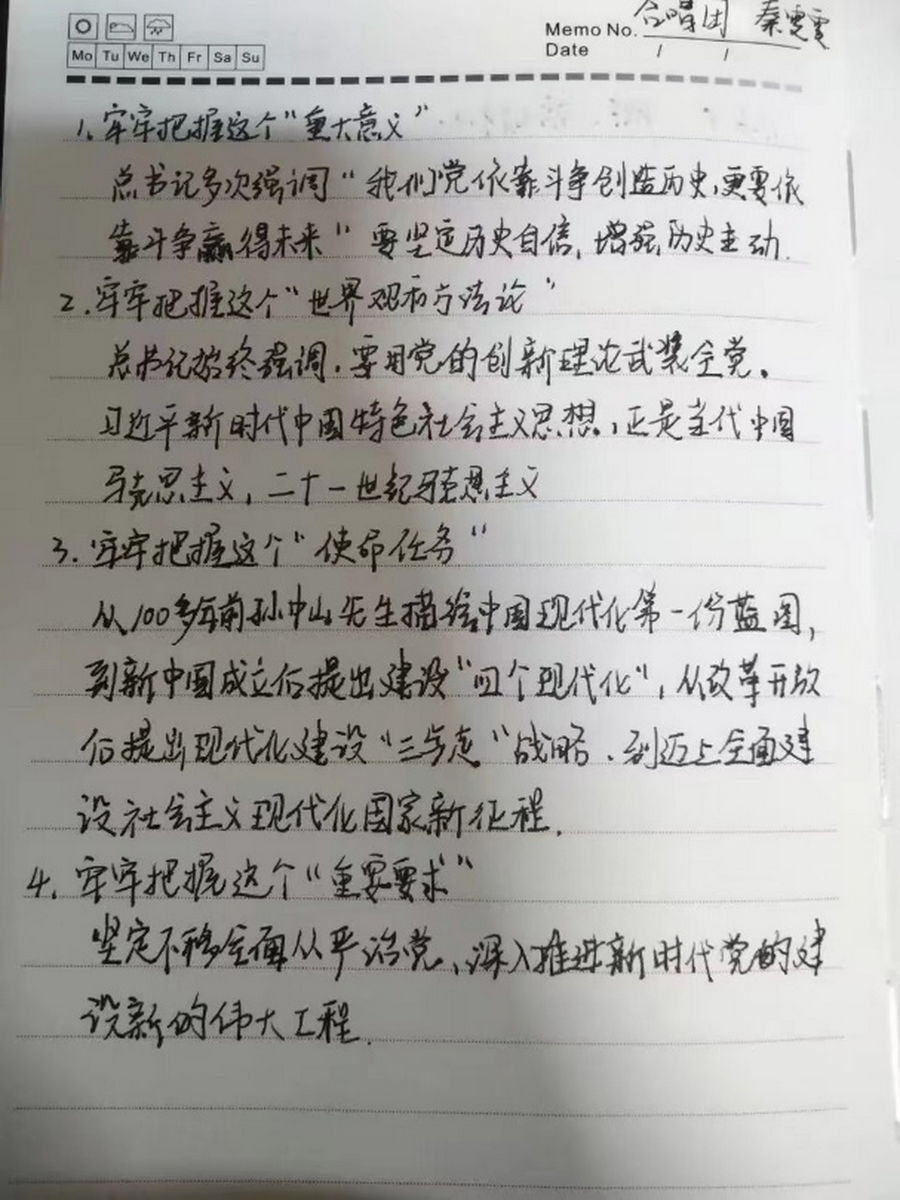 Memo No. 合唱团 秦雯雯
Mo Tu We Th Fr Sa Su
Date / /
1、牢牢把握这个“重大意义”
总书记多次强调“我们党依靠斗争创造历史,更要依
靠斗争赢得未来”要坚定历史自信,增强历史主动.
2.牢牢把握这个“世界观和方法论”
总书记始终强调,要用党的创新理论武装全党。
习近平新时代中国特色社会主义思想,正是当代中国
马克思主义,二十一世纪马克思主义
3.牢牢把握这个“使命任务”
从100多年前孙中山先生描绘中国现代化第一份蓝图,
到新中国成立后提出建设“四个现代化”,从改革开放
后提出现代化建设“三步走”战略、到迈上全面建
设社会主义现代化国家新征程.
4.牢牢把握这个“重要要求”
坚定不移全面从严治党、深入推进新时代党的建
设新的伟大工程.